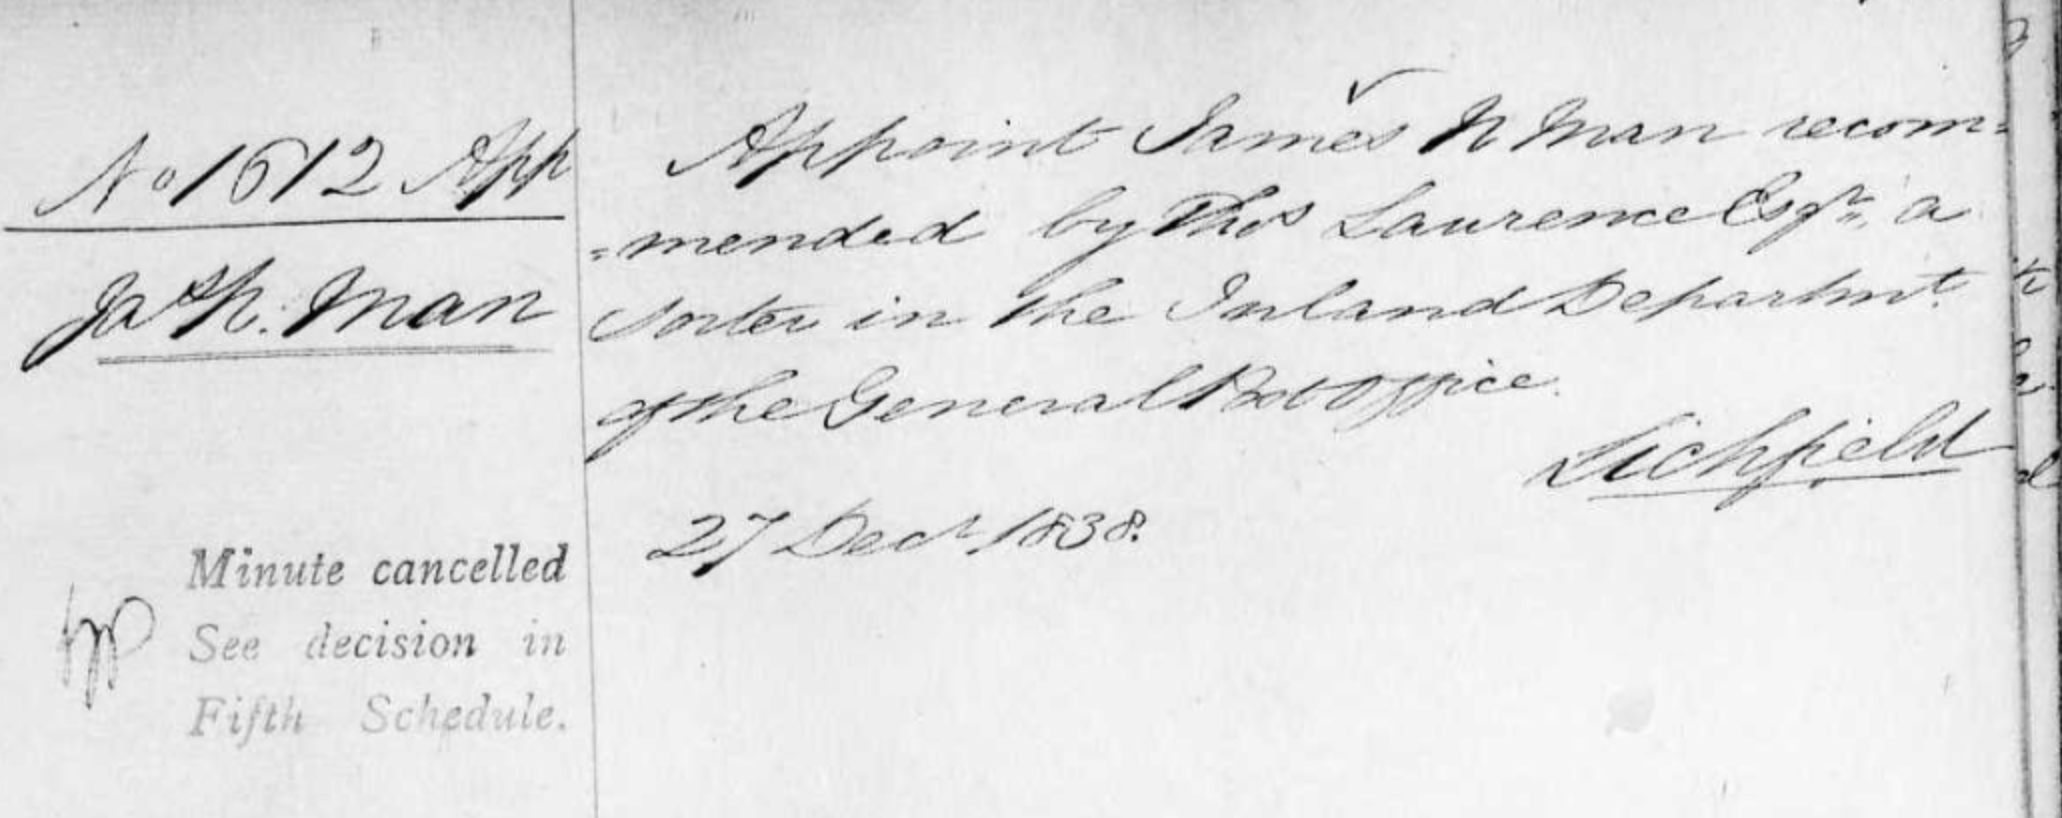 No 1612 App
Jas N. Man
Appoint James N Man recom=
=mended by Thos Laurence Esqre. a
Sorter in the Inland Departmt.
of the General Post Office.
Lichfield
27 Decr 1838.
Minute cancelled
See decision in
Fifth Schedule.